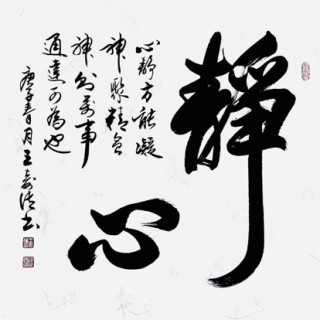 靜心
心靜方能凝
神聚精會
神則萬事
通達可為也
庚子春月王書